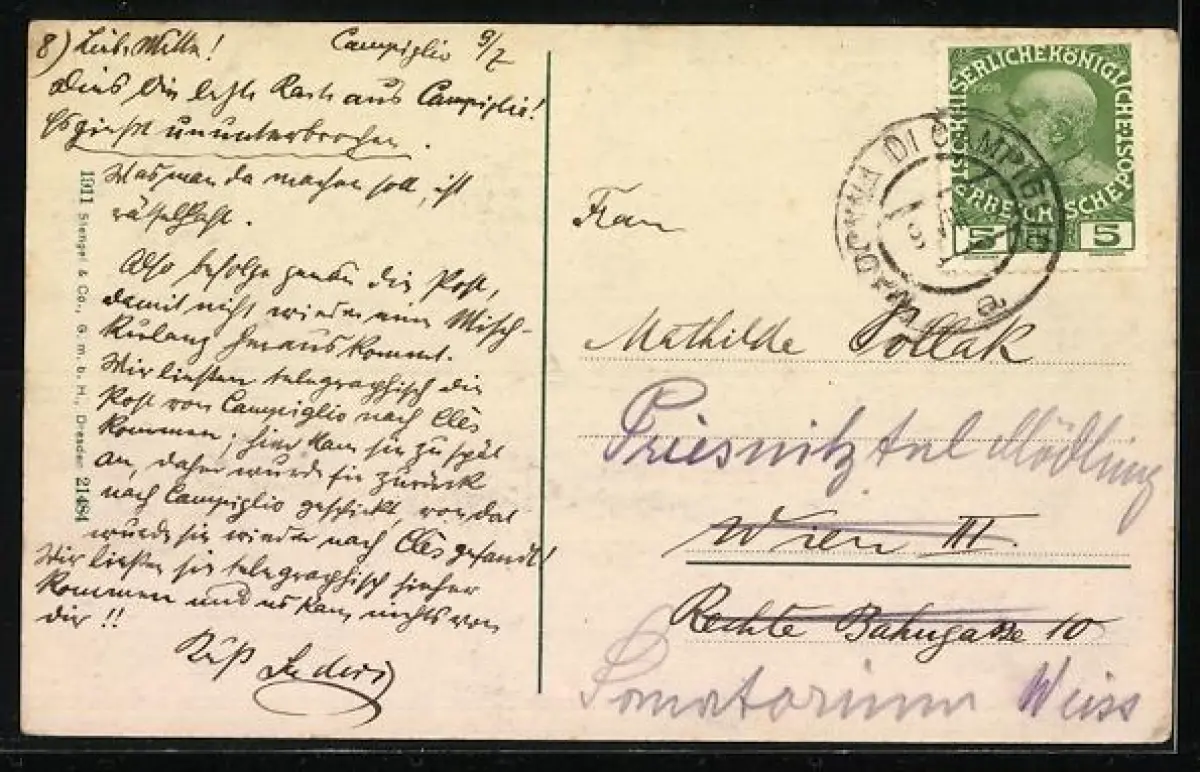 8) Liebe Milla! Campiglio 9/7
Dies die letzte Karte aus Campiglio!
Es gießt ununterbrochen.
Was man da machen soll, ist
rätselhaft.
Also befolge genau die Post,
damit nicht wieder ein Misch-
Kulanz herauskommt.
Wir ließen telegraphisch die
Post von Campiglio nach Clès
kommen; hier kam sie zu spät
an, daher wurde sie zurück
nach Campiglio geschickt, von da
wurde sie wieder nach Clès gesandt!
Wir ließen sie telegraphisch hieher
kommen und es kam nichts von
dir!!
Kuß
1911 Stengel & Co., G. m. b. H., Dresden 21484
KAISERLICHE KÖNIGLICHE ÖSTERREICHISCHE POST
1908
5 5
MADONNA DI CAMPIGLIO
a
Frau
Mathilde Pollak
Priesnitztal Mödling
Wien III.
Rechte Bahngasse 10
Sanatorium Weiss